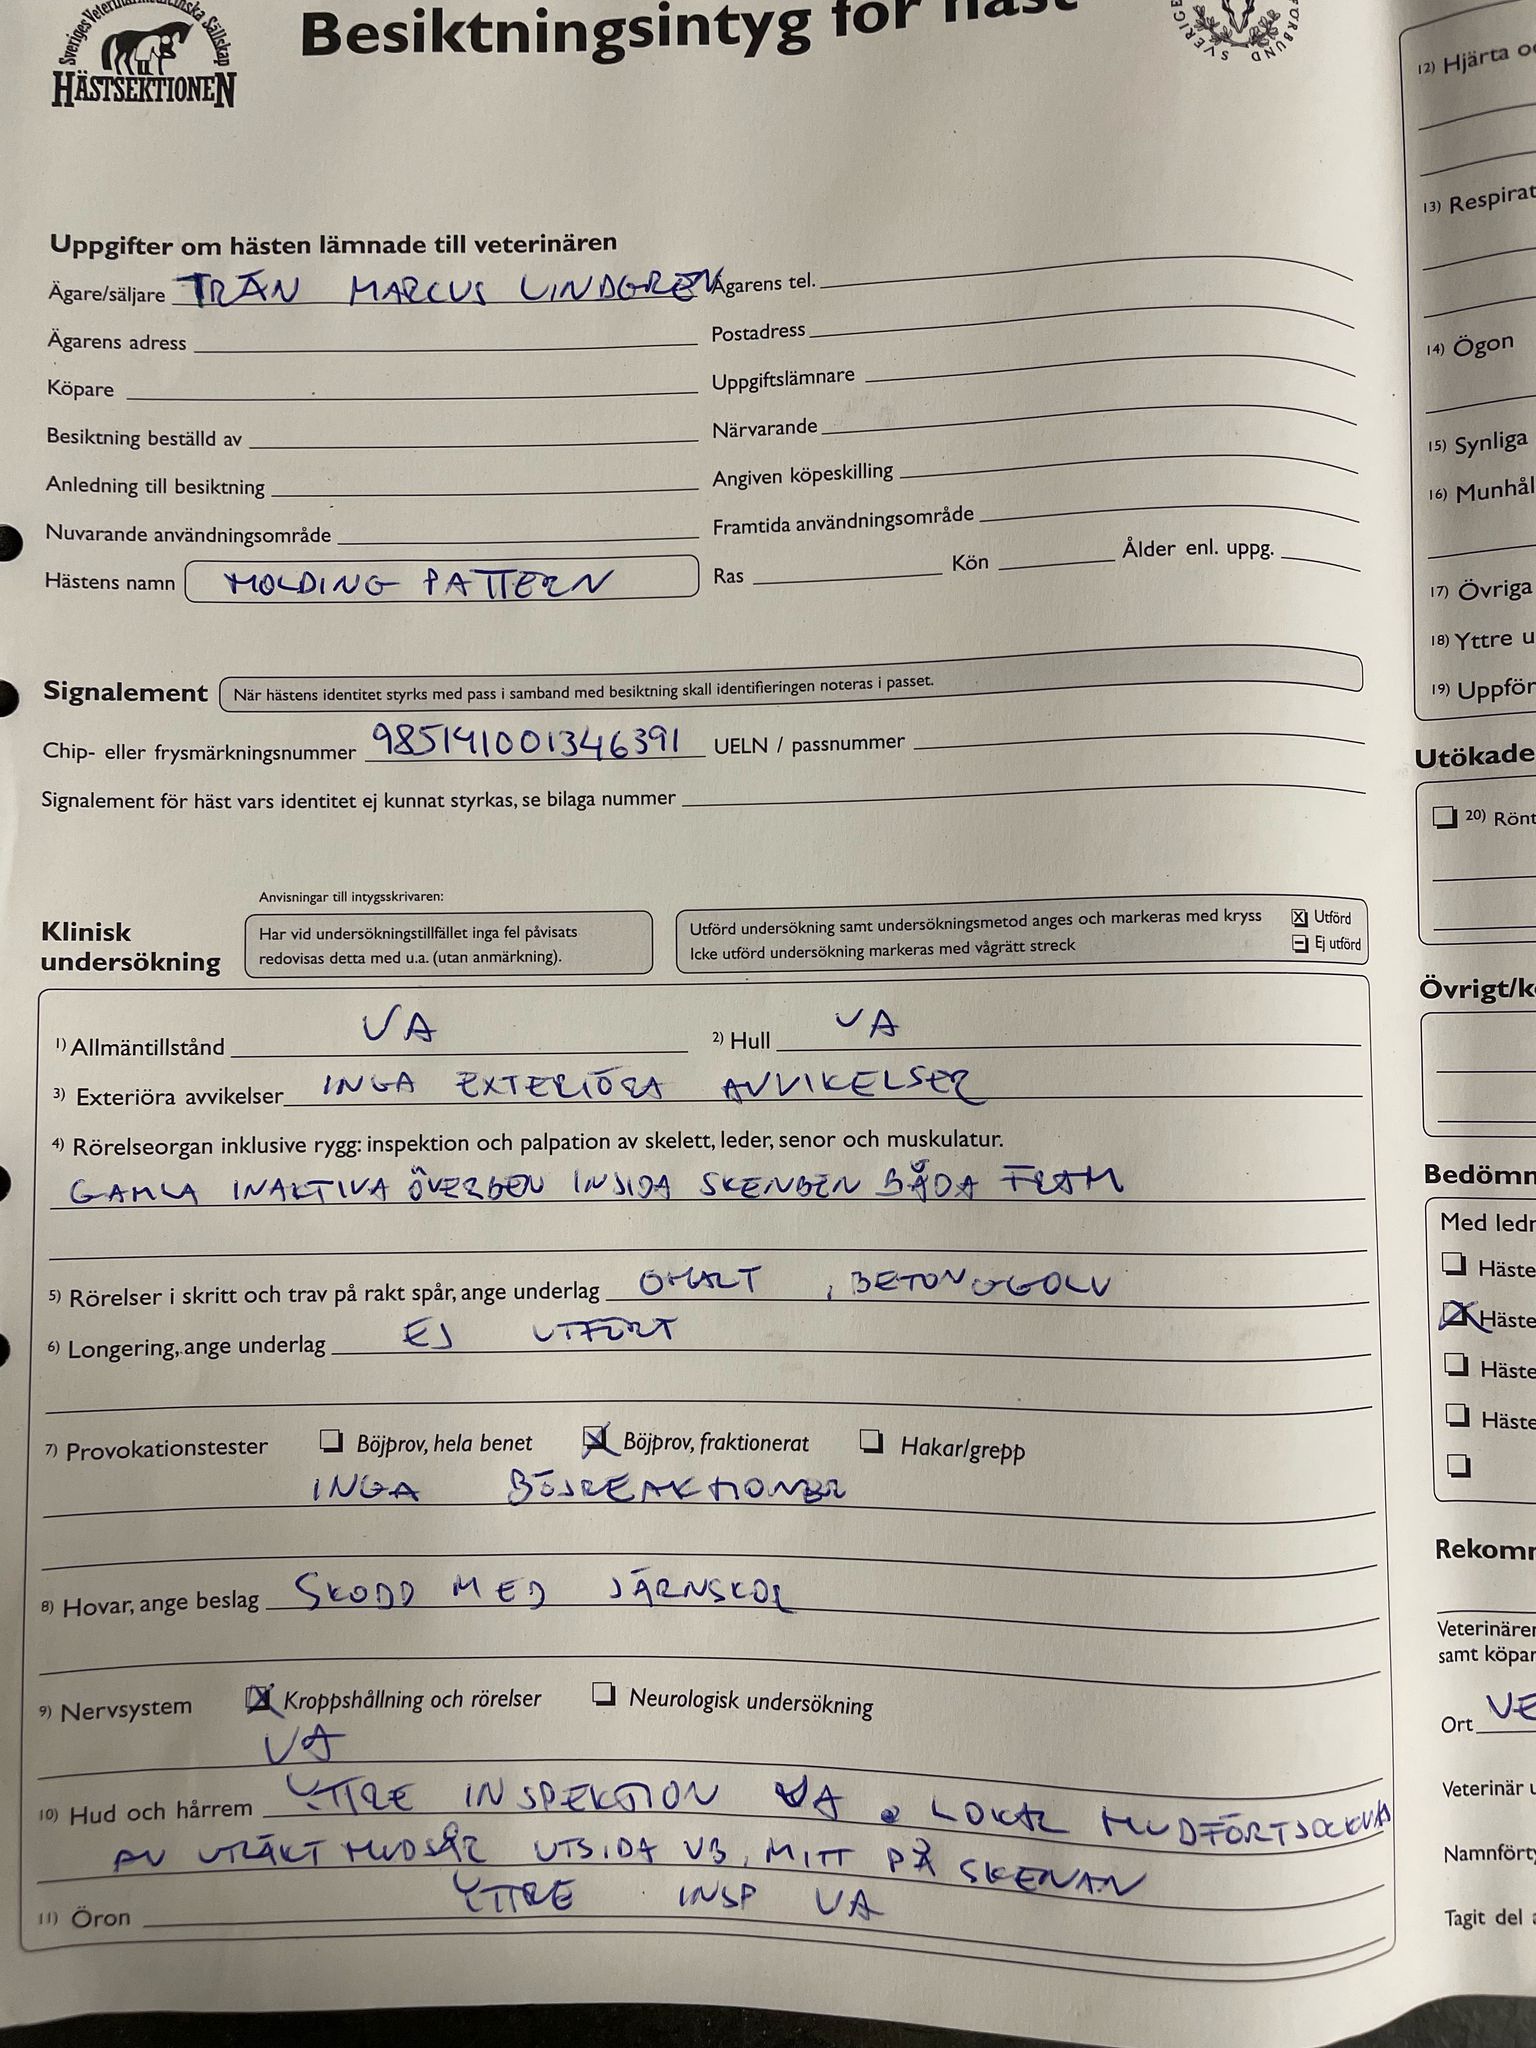 Sveriges Veterinärmedicinska Sällskap
HÄSTSEKTIONEN
Besiktningsintyg för häst
SVERIGES FÖRBUND
Uppgifter om hästen lämnade till veterinären
Ägare/säljare TRÄN MARCUS LINDGREN Ägarens tel.
Ägarens adress Postadress
Köpare Uppgiftslämnare
Besiktning beställd av Närvarande
Anledning till besiktning Angiven köpeskilling
Nuvarande användningsområde Framtida användningsområde
Hästens namn HOLDING PATTERN Ras Kön Ålder enl. uppg.
Signalement När hästens identitet styrks med pass i samband med besiktning skall identifieringen noteras i passet.
Chip- eller frysmärkningsnummer 985141001346391 UELN / passnummer
Signalement för häst vars identitet ej kunnat styrkas, se bilaga nummer
Klinisk undersökning
Anvisningar till intygsskrivaren:
Har vid undersökningstillfället inga fel påvisats
redovisas detta med u.a. (utan anmärkning).
Utförd undersökning samt undersökningsmetod anges och markeras med kryss Utförd
Icke utförd undersökning markeras med vågrätt streck Ej utförd
1) Allmäntillstånd UA 2) Hull UA
3) Exteriöra avvikelser INGA EXTERIÖRA AVVIKELSER
4) Rörelseorgan inklusive rygg: inspektion och palpation av skelett, leder, senor och muskulatur.
GAMLA INAKTIVA ÖVERBEN INSIDA SKENBEN BÅDA FRAM
5) Rörelser i skritt och trav på rakt spår, ange underlag OHALT, BETONGGOLV
6) Longering, ange underlag EJ UTFÖRT
7) Provokationstester Böjprov, hela benet Böjprov, fraktionerat Hakar/grepp
INGA BÖJREAKTIONER
8) Hovar, ange beslag SKODD MED JÄRNSKOR
9) Nervsystem Kroppshållning och rörelser Neurologisk undersökning
UA
10) Hud och hårrem YTTRE INSPEKTION UA. LOKAL HUDFÖRTJOCKN
AV UTLÄKT HUDSÅR UTSIDA VB, MITT PÅ SKENAN
11) Öron YTTRE INSP UA
12) Hjärta oc
13) Respirat
14) Ögon
15) Synliga
16) Munhål
17) Övriga
18) Yttre u
19) Uppför
Utökade
20) Rönt
Övrigt/k
Bedömn
Med ledn
Häste
Häste
Häste
Häste
Rekom
Veterinären
samt köpar
Ort VE
Veterinär u
Namnförty
Tagit del a